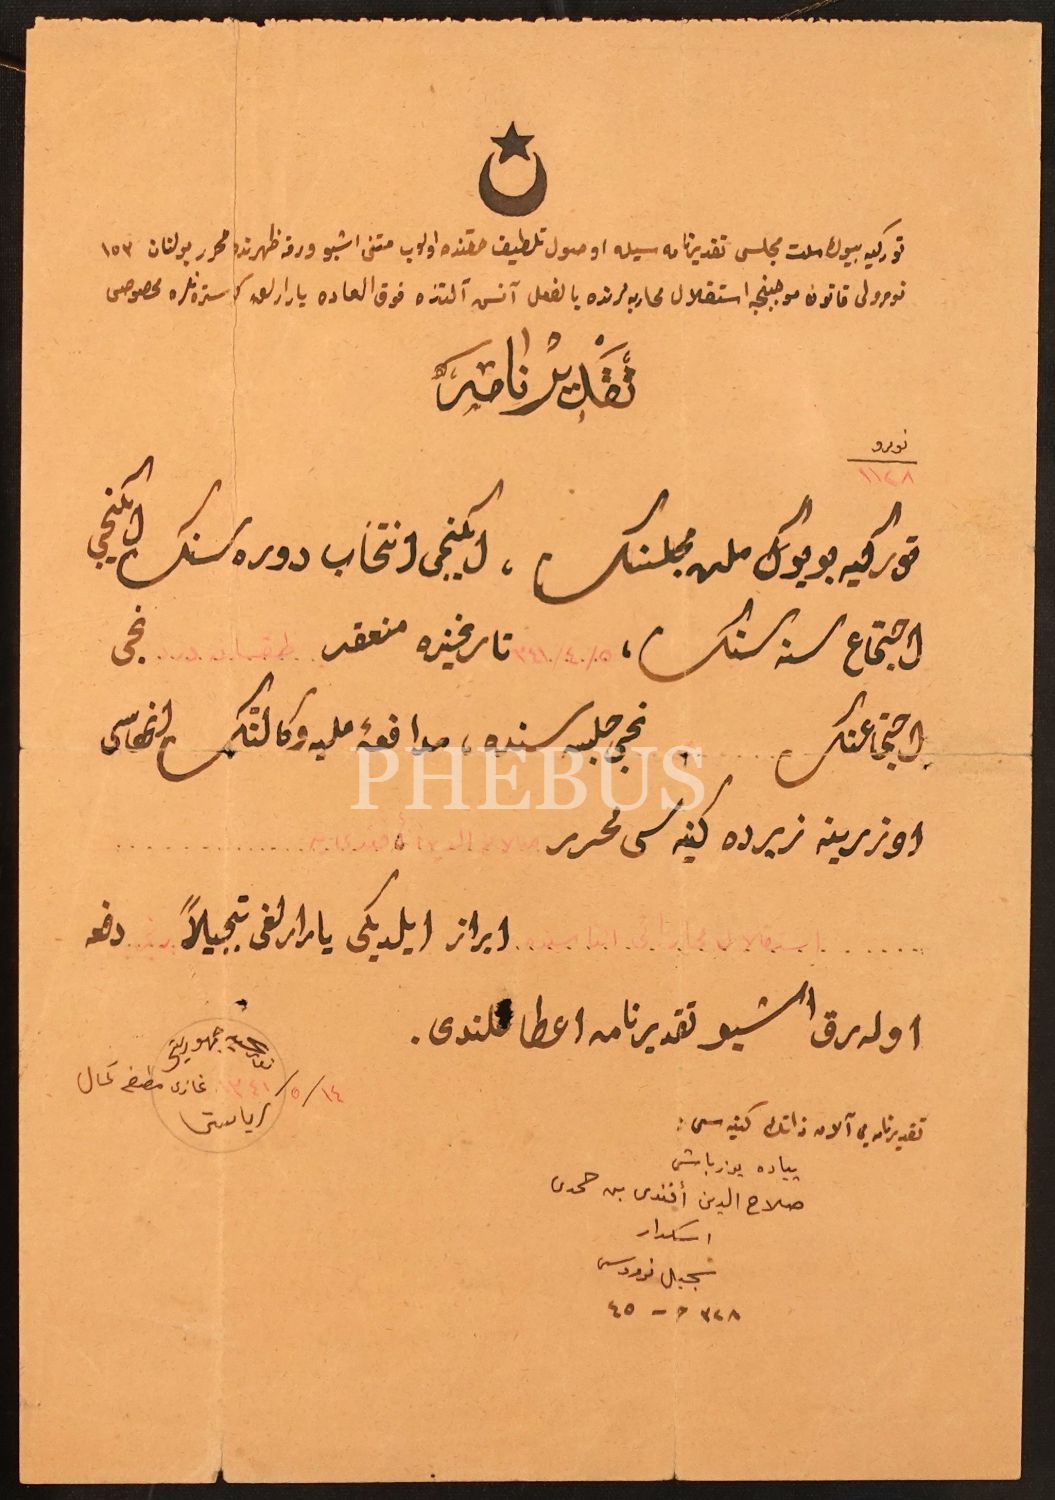 توركيه بيوك ملت مجلسى تقديرنامه سيله اوصول تلطيف حقنده اولوب متنى اشبو ورقه ظهرنده محرر بولنان ١٥٣
نومرولى قانون موجبنجه استقلال محاربه لرنده بالفعل آتش آلتنده فوق العاده يارارلق كوسترنلره مخصوص
تقديرنامه
نومرو
١١٢٨
توركيه بويوك ملت مجلسنك ، ايكنجى انتخاب دوره سنك ايكنجى
اجتماع سنه سنك ، ٣٤١/٤/٥ تاريخنده منعقد نجى
اجتماعنك نجى جلسه سنده ، مدافعۀ مليه وكالتنك انهاسى
اوزرينه زيرده كنيه سى محرر صلاح الدين أفندى
استقلال محاربه سى اثناسنده ابراز ايلديكى يارارلغى تبجيلاً دفعه
اوله رق اشبو تقديرنامه اعطا قلندى .
جمهوريتى
غازى مصطفى كمال ٣٤١/٥/١٤
رياستى
تقديرنامه يى آلان ذاتك كنيه سى :
پياده يوزباشى
صلاح الدين أفندى بن حمدى
اسكدار
سجيل نومروسى
٣٢٨ - ٤٥
PHEBUS